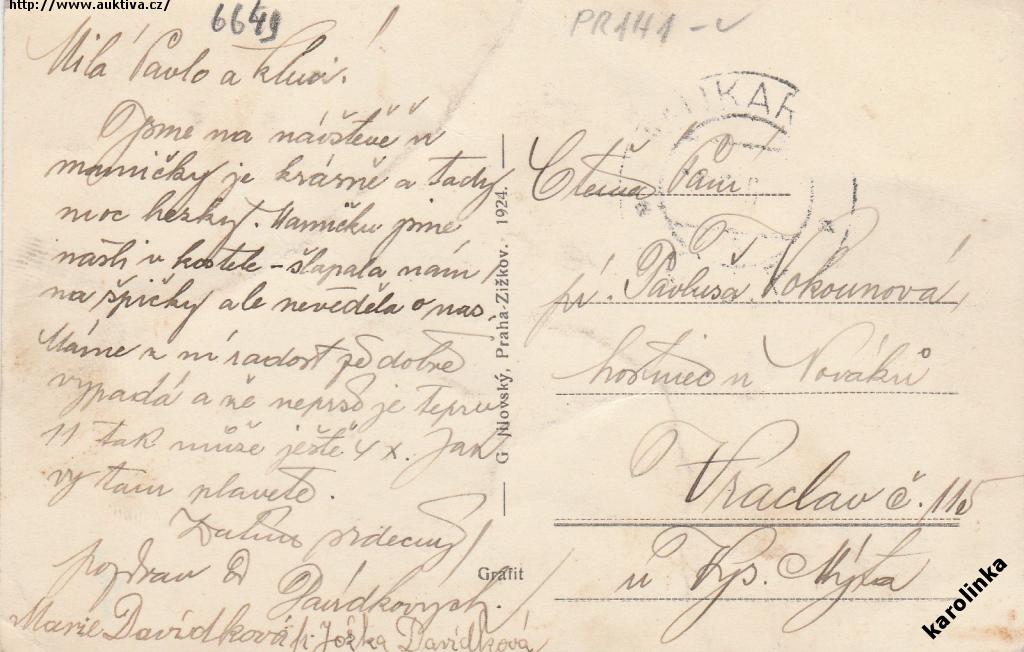 http://www.auktiva.cz/
6649
PRAHA - V
Milá Pavlo a kluci.
Jsme na návštěvě u
mamičky je krásně a tady
moc hezky. Mamičku jsme
našli v kostele - šlapala nám
na špičky ale nevěděla o nás.
Máme z ní radost že dobře
vypadá a že neprší je teprv
11 tak může ještě 4 x. Jak
vy tam plavete.
srdečný
pozdrav od
Davídkových.
Marie Davídková Joška Davídková
G. Jilovský, Praha-Žižkov. 1924.
Grafit
UKAR
Ctěná Paní
Pavlusa Vokounová
hostinec u Nováků
Vraclav č. 115
u Vys. Mýta
karolinka